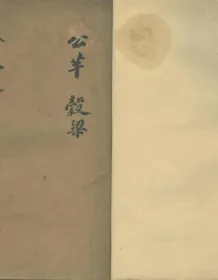 公羊 穀梁